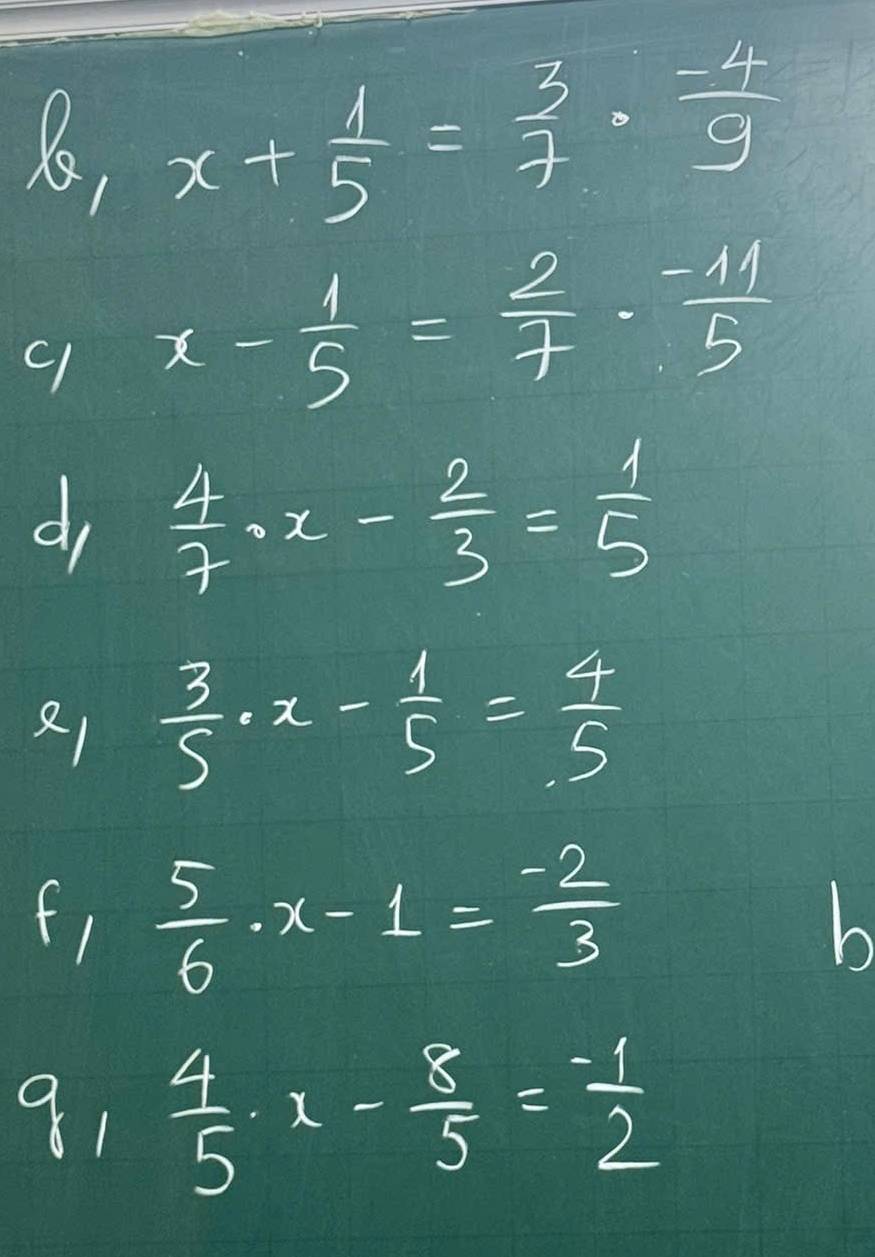 b, x + 1/5 = 3/7 · -4/9
c, x - 1/5 = 2/7 · -11/5
d, 4/7 · x - 2/3 = 1/5
e, 3/5 · x - 1/5 = 4/5
f, 5/6 · x - 1 = -2/3
b
g, 4/5 · x - 8/5 = -1/2